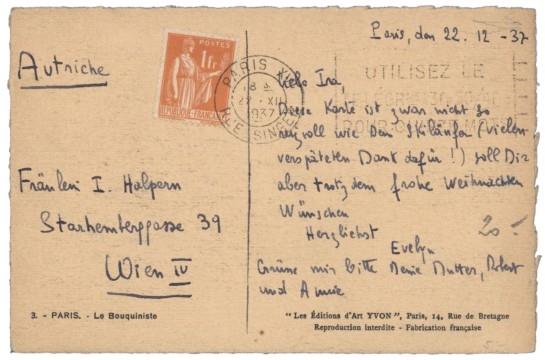 Autriche
Fräulein I. Halpern
Starhemberggasse 39
Wien IV
3. - PARIS. - Le Bouquiniste
POSTES
1 Fr.
REPUBLIQUE FRANÇAISE
PARIS XI
22 XII
1937
UTILISEZ LE
Paris, den 22. 12 - 37
Liebe Ira
Diese Karte ist zwar nicht so
reizvoll wie Dein Skiläufer (vielen
verspäteten Dank dafür!) soll Dir
aber trotzdem frohe Weihnachten
Wünschen
Herzlichst
Evelyn
20.-
Grüsse mir bitte Deine Mutter, Robert
und Annie
"Les Éditions d'Art YVON", Paris, 14, Rue de Bretagne
Reproduction interdite - Fabrication française